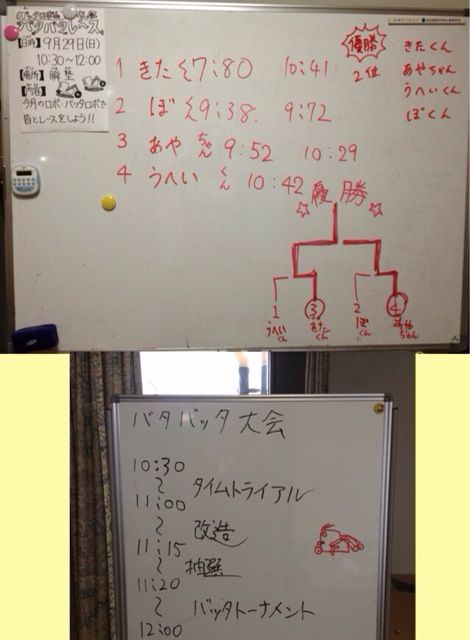 バタバタレース
【日時】9月29日(日)
10:30〜12:00
【場所】瞬塾
【内容】
今月のロボ・バッタロボで
皆とレースをしよう!!
1 きたくん 7:80 10:41
2 ぼくん 9:38. 9:72
3 あやちゃん 9:52 10:29
4 うへいくん 10:42
優勝 きたくん
2位 あやちゃん
うへいくん
ぼくん
☆優勝☆
1 ③ 2 ④
うへいくん きたくん ぼくん あやちゃん
バタバッタ大会
10:30
〜 タイムトライアル
11:00
〜 改造
11:15
〜 抽選
11:20
〜 バッタトーナメント
12:00